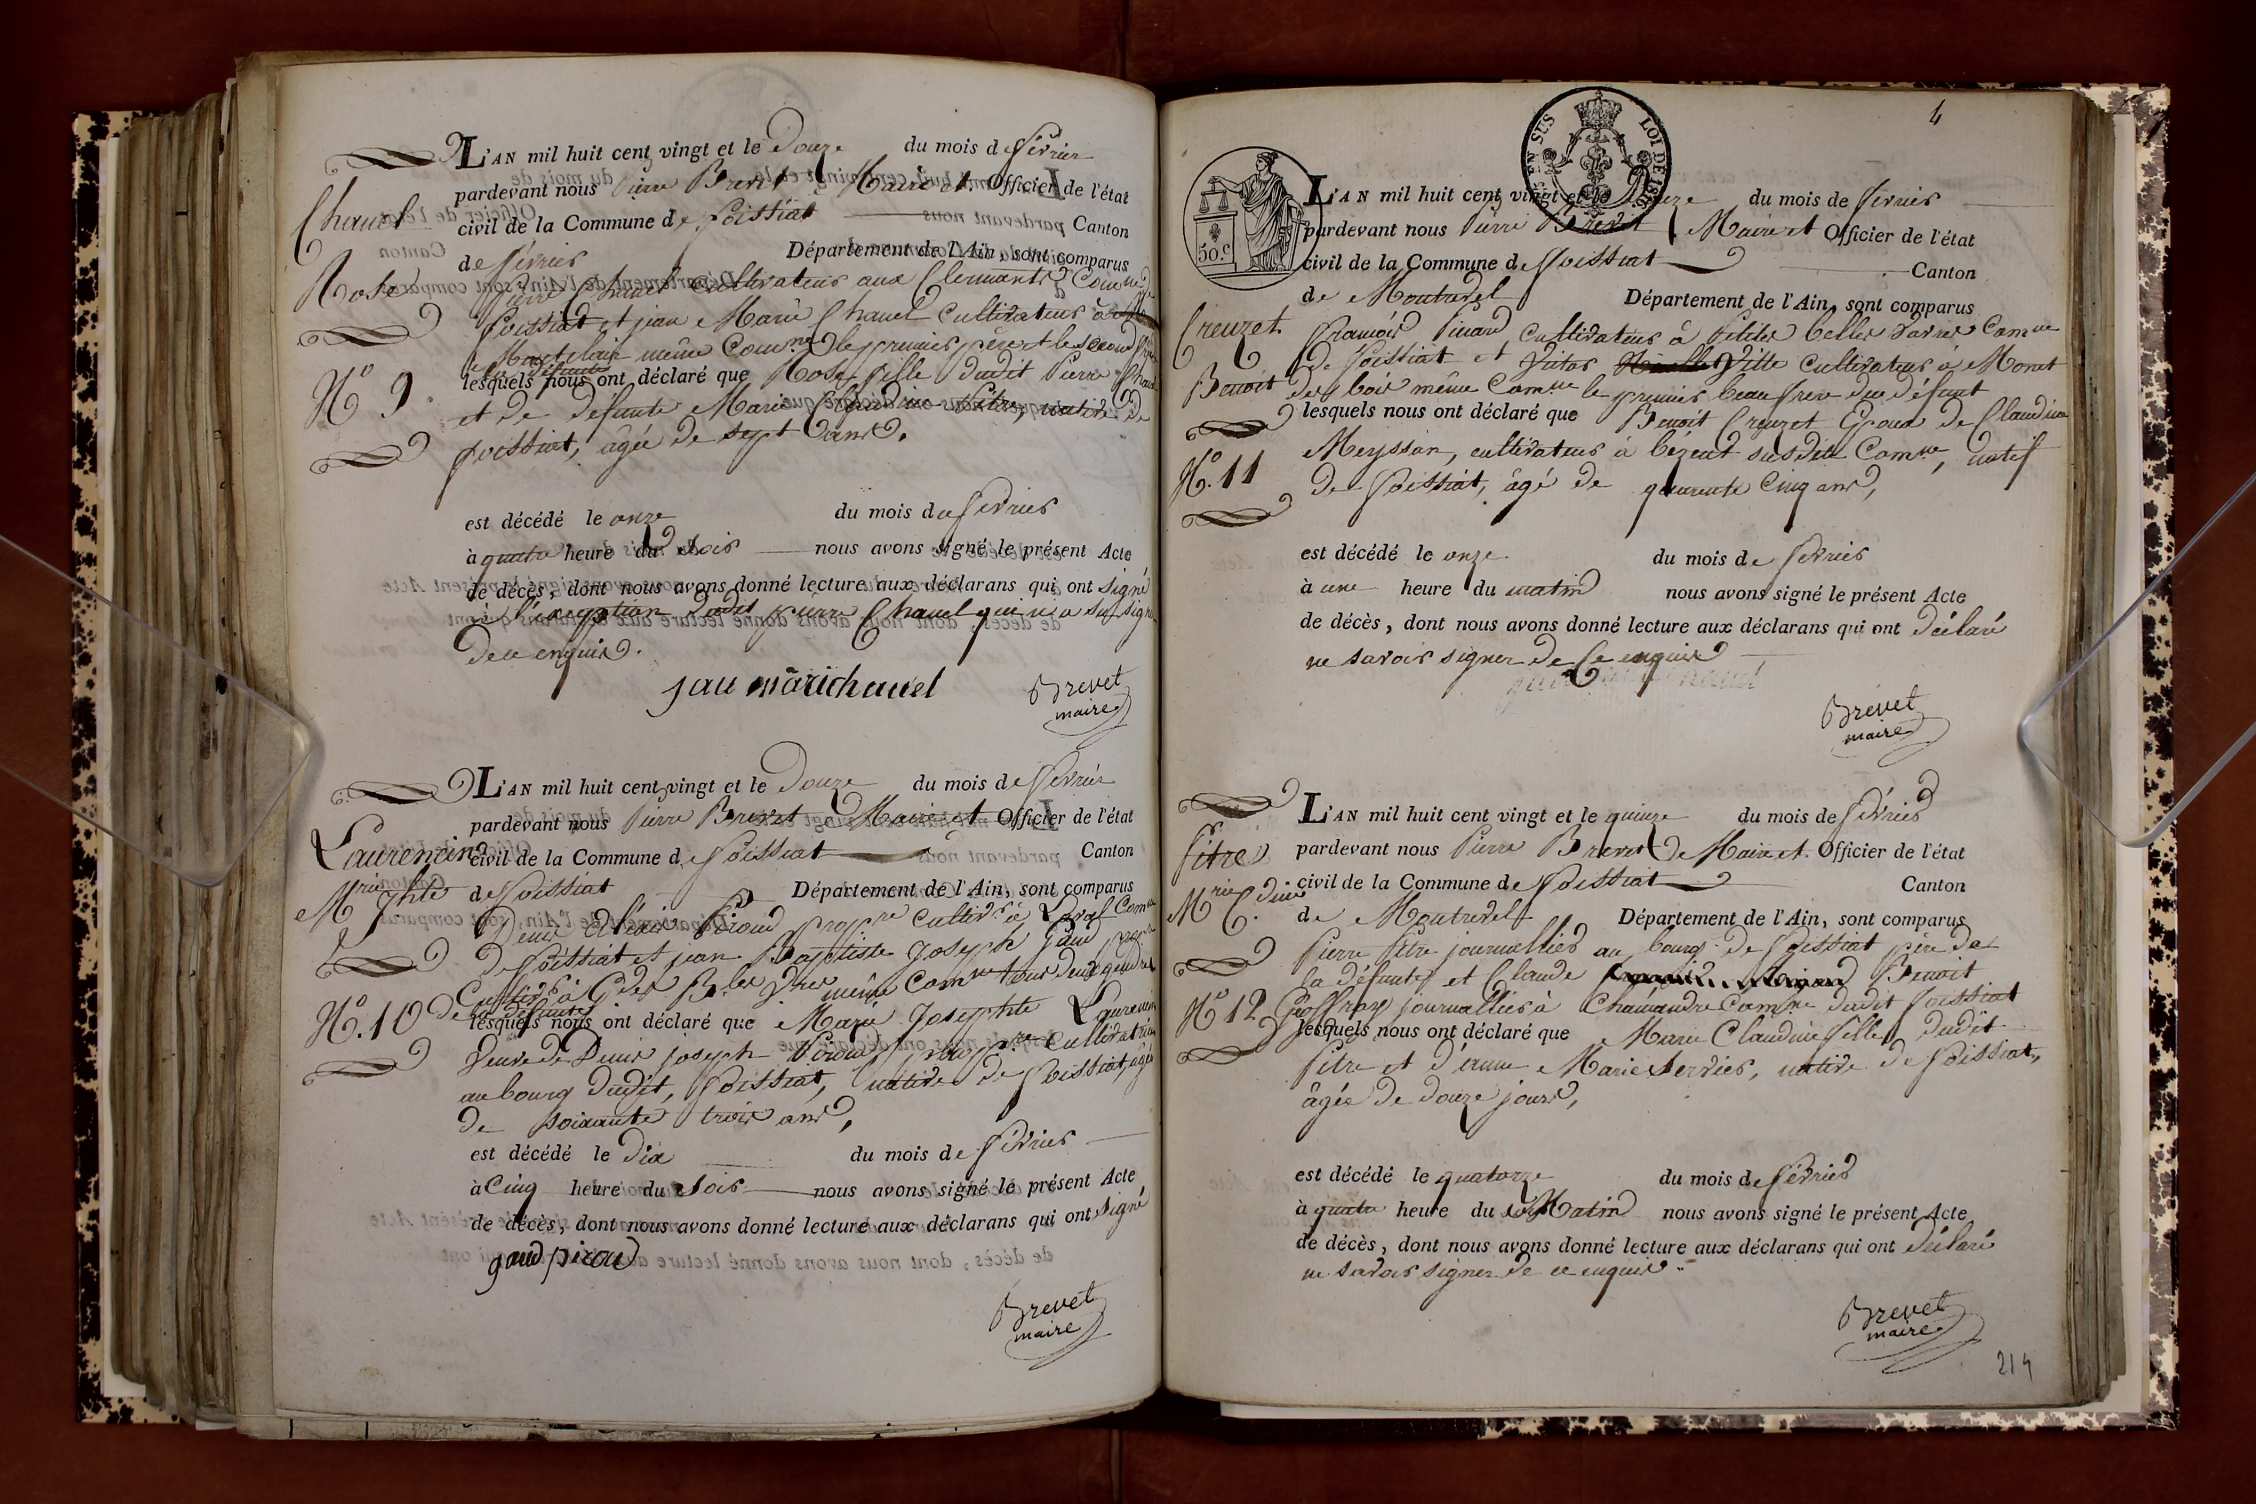 L'AN mil huit cent vingt et le Douze du mois de février
pardevant nous Pierre Brevet Maire et Officier de l'état
Chanel
civil de la Commune de foissiat Canton
de février Département de l'Ain, sont comparus
Rose
Pierre Chanel cultivateur aux Clermonts Comme de
foissiat et jean Marie Chanel cultivateur à
même Comme le premier père et le second
de la défunte
N° 9
lesquels nous ont déclaré que Rose fille dudit Pierre Chanel
et de défunte Marie Claudine native de
foissiat, âgée de sept ans.
est décédé le onze du mois de février
à quatre heure du soir nous avons signé le présent Acte
de décès, dont nous avons donné lecture aux déclarans qui ont signé
à l'exception dudit pierre Chanel qui n'a su signer
de ce enquis.
jan marichanel
Brevet
maire
L'AN mil huit cent vingt et le Douze du mois de février
pardevant nous Pierre Brevet Maire et Officier de l'état
Laurencin
civil de la Commune de foissiat Canton
Mrie Jphte
de foissiat Département de l'Ain, sont comparus
Denis Alexis Piroud propre cultivr à Comne
de foissiat et jean Baptiste Joseph Gaud propre
Cultivr à même Comne tous deux gendres
de la défunte
N°. 10
lesquels nous ont déclaré que Marie Josephte Laurencin
veuve de Denis joseph Piroud, propre Cultivatrice
au bourg dudit, foissiat, native de foissiat, âgée
de soixante trois ans,
est décédé le dix du mois de février
à Cinq heure du soir nous avons signé le présent Acte
de décès, dont nous avons donné lecture aux déclarans qui ont signé
gaud piroud
Brevet
maire
4
EN SUS LOI DE 1816
50.c
L'AN mil huit cent vingt et le Douze du mois de février
pardevant nous Pierre Brevet Maire et Officier de l'état
civil de la Commune de foissiat Canton
de Montrevel Département de l'Ain, sont comparus
Creuzet
françois Pinard cultivateur à Petites belles vavres Comne
de foissiat et Vitte cultivateur à Monet
Benoit
des bois même Comne le premier beau frere du défunt
lesquels nous ont déclaré que Benoit Creuzet Epoux de Claudine
Meyssan, cultivateur à bézent susdite Comne, natif
N°. 11
de foissiat, âgé de quarante cinq ans,
est décédé le onze du mois de février
à une heure du matin nous avons signé le présent Acte
de décès, dont nous avons donné lecture aux déclarans qui ont déclaré
ne savoir signer de ce enquis
Brevet
maire
L'AN mil huit cent vingt et le quinze du mois de février
fitre
pardevant nous Pierre Brevet Maire et Officier de l'état
Mrie Cdine
civil de la Commune de foissiat Canton
de Montrevel Département de l'Ain, sont comparus
Pierre fitre journallier au bourg de foissiat père de
la défunte et Claude Benoit
N° 12
Geoffray journallier à Chamandre Comne dudit foissiat
lesquels nous ont déclaré que Marie Claudine fille dudit
fitre et d'anne Marie ferrier, native de foissiat,
âgée de douze jours,
est décédé le quatorze du mois de février
à quatre heure du Matin nous avons signé le présent Acte
de décès, dont nous avons donné lecture aux déclarans qui ont déclaré
ne savoir signer de ce enquis
Brevet
maire
214